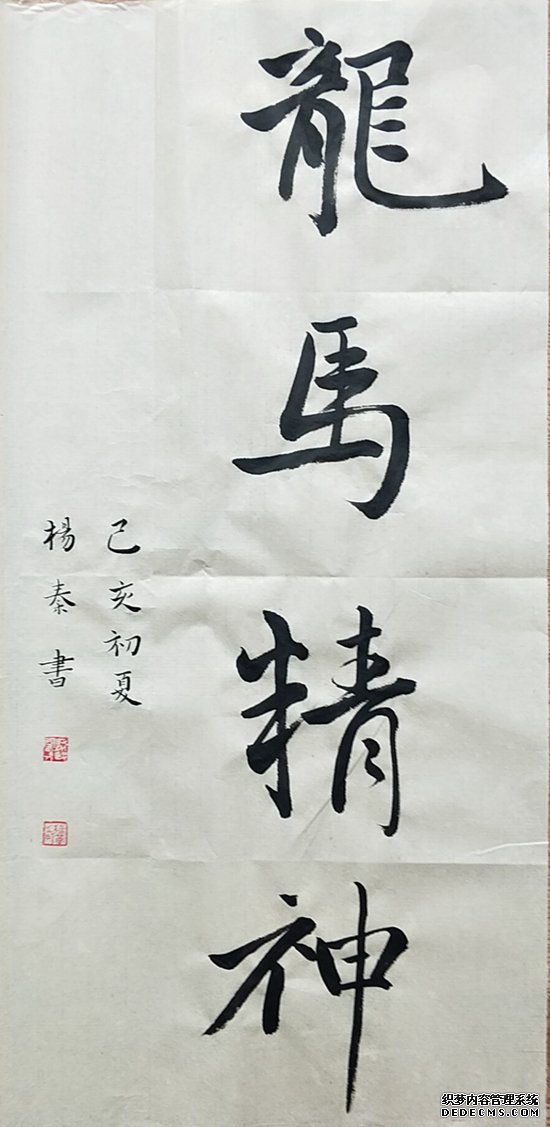 龍馬精神
己亥初夏
楊秦書
织梦内容管理系统
DEDECMS.COM